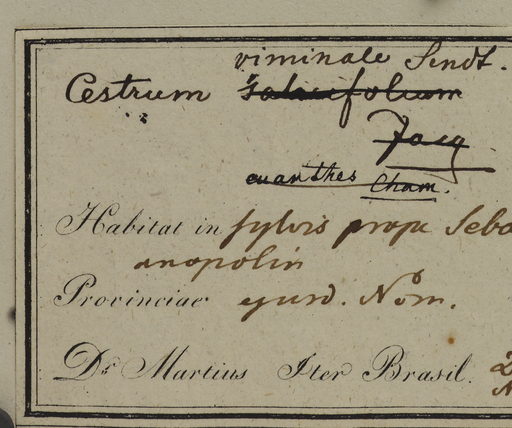 viminale Sendt.
Cestrum salicifolium
Jacq
euanthes Cham.
Habitat in sylvis prope Seba
anopolin
Provinciae ejusd. Nom.
Dr. Martius Iter Brasil.